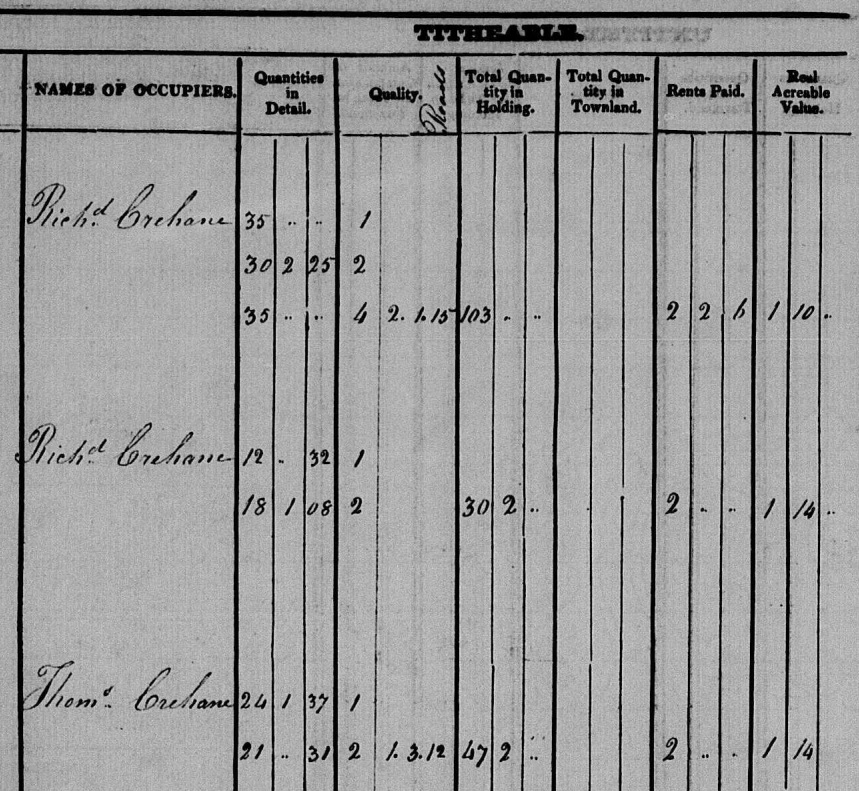 TITHEABLE.
NAMES OF OCCUPIERS. Quantities in Detail. Quality. Roads Total Quantity in Holding. Total Quantity in Townland. Rents Paid. Real Acreable Value.
Richd Crehane 35 .. .. 1
30 2 25 2
35 .. .. 4 2. 1. 15 103 .. .. 2 2 6 1 10 ..
Richd Crehane 12 .. 32 1
18 1 08 2 30 2 .. 2 .. .. 1 14 ..
Thoms Crehane 24 1 37 1
21 .. 31 2 1. 3. 12 47 2 .. 2 .. .. 1 14